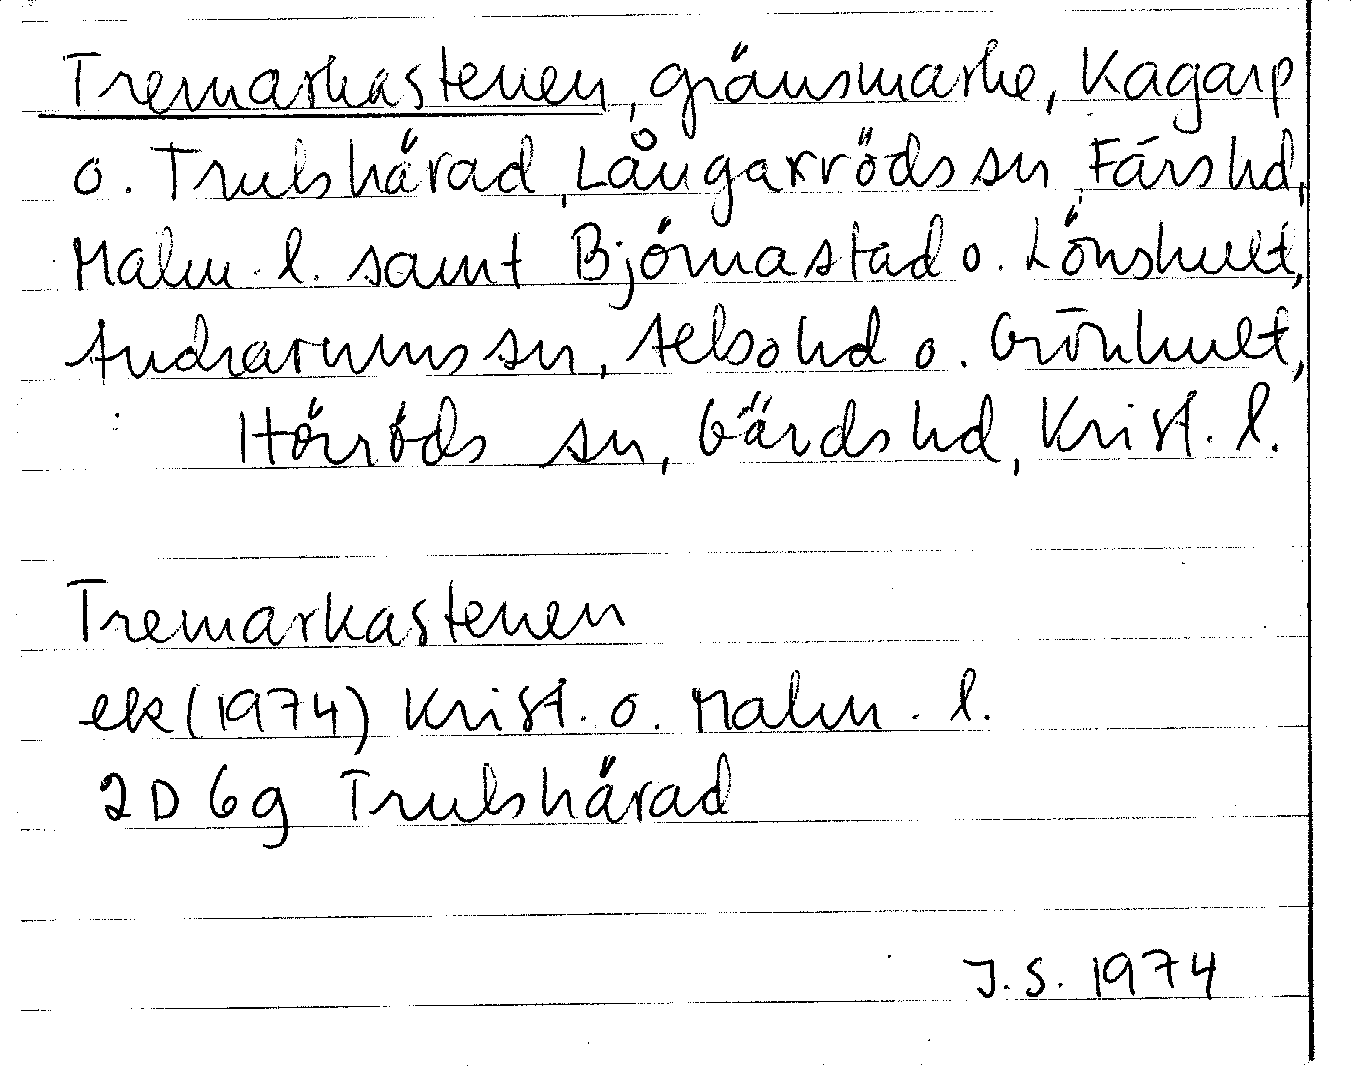 Tremarkastenen, gränsmärke, Kagarp
o. Trulshärad, Långarröds sn, Färs hd,
Malm. l. samt Björnastad o. Lönshult,
Andrarums sn, Albo hd o. Grönhult,
Hörröds sn, Gärds hd, Krist. l.
Tremarkastenen
ek (1974) Krist. o. Malm. l.
2D 6g Trulshärad
J.S. 1974